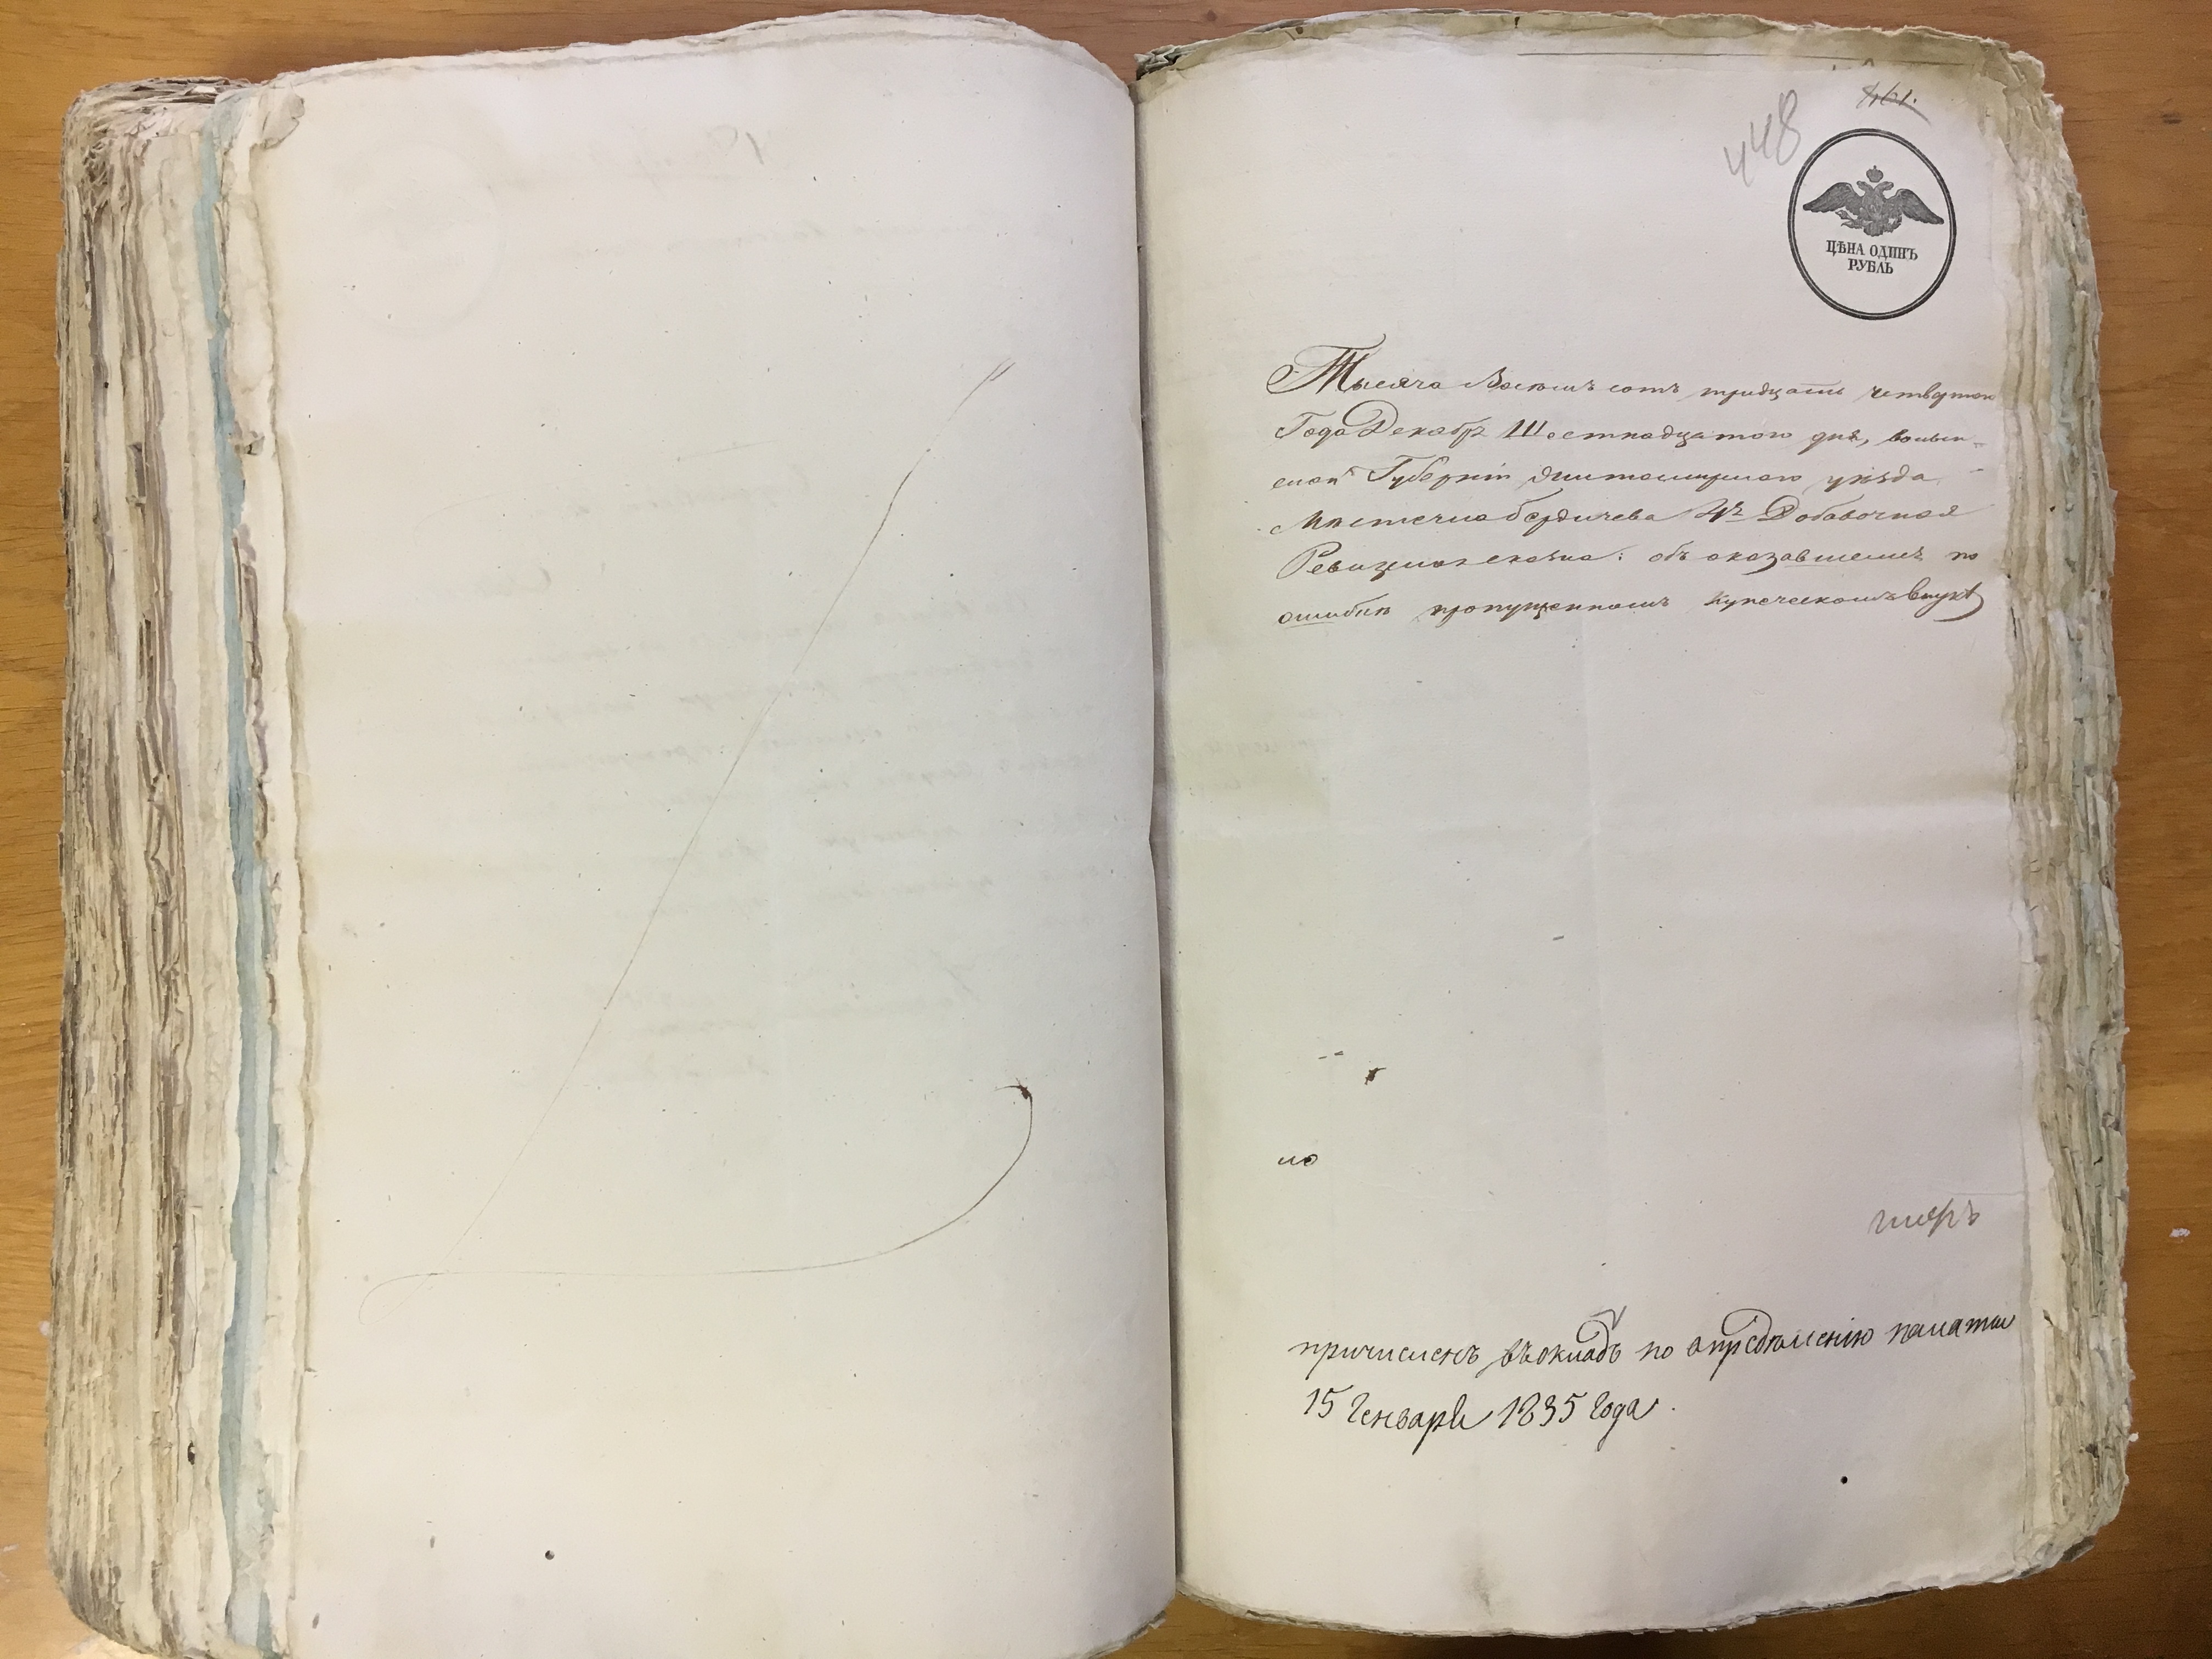 461.
448
ЦѢНА ОДИНЪ
РУБЛЬ
Тысяча Восемь сотъ тридцать четвертого
Года Декабр Шестнадцатого дня, волын-
ской Губерніи Житомирского уѣзда
Мѣстечка бердичева 4я Добавочная
Ревизская сказка: объ оказавшемся по
ошибкѣ пропущенномъ купеческомъ внукѣ
по
причисленъ въ окладъ по опредѣленію палаты
15 Генваря 1835 года.